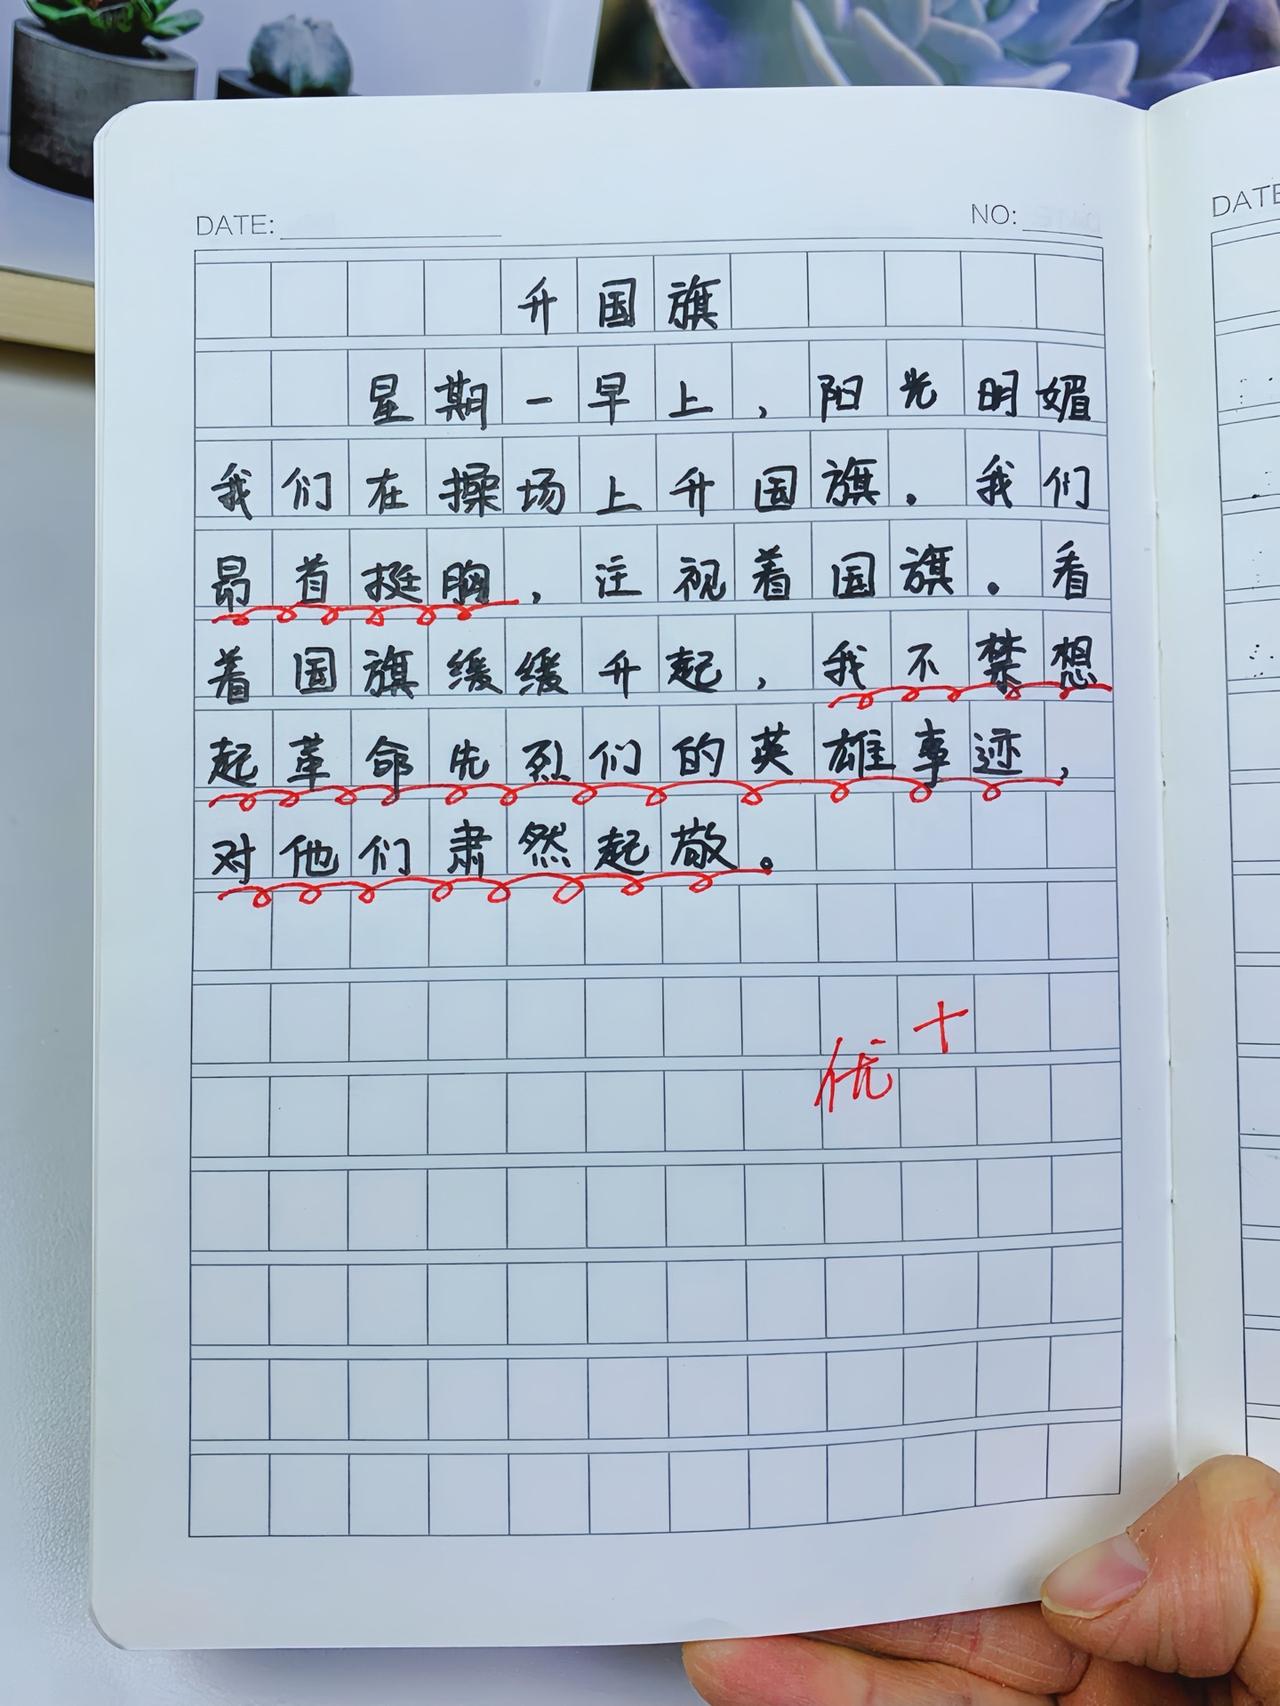 DATE: NO:
DATE
升国旗
星期一早上，阳光明媚
我们在操场上升国旗。我们
昂首挺胸，注视着国旗。看
着国旗缓缓升起，我不禁想
起革命先烈们的英雄事迹，
对他们肃然起敬。
优+